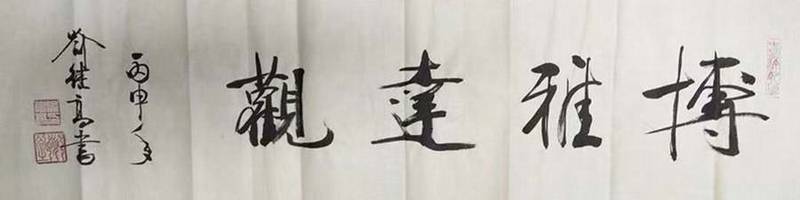 博雅達觀
丙申冬
继高書